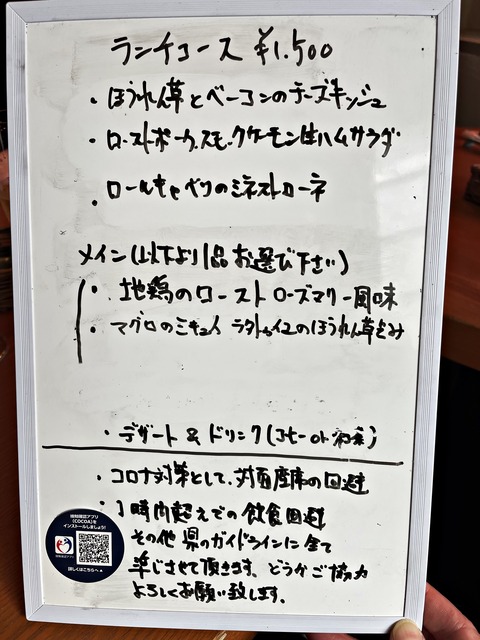 ランチコース ¥1,500
・ほうれん草とベーコンのチーズキッシュ
・ローストポーク、スモークサーモン生ハムサラダ
・ロールキャベツのミネストローネ
メイン(以下より1品お選び下さい)
・地鶏のロースト ローズマリー風味
・マグロのミキュイ ラタトゥイユのほうれん草包み
・デザート & ドリンク(コーヒー or 紅茶)
・コロナ対策として、対面座席の回避
・1時間超えでの飲食回避
その他 県のガイドラインに全て
準じさせて頂きます。どうかご協力
よろしくお願い致します。
接触確認アプリ
(COCOA)を
インストールしましょう!
詳しくはこちらへ